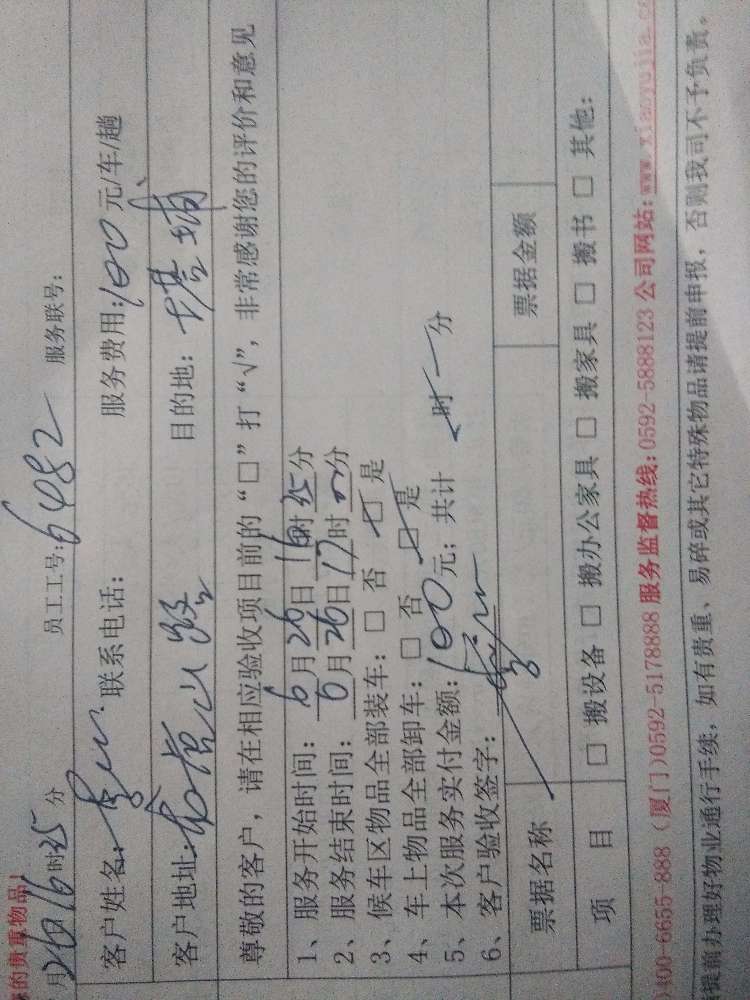 的贵重物品!
月26日16时25分 员工工号:6482 服务联号:
客户姓名: 联系电话: 服务费用:100元/车/趟
客户地址: 路 目的地: 塘埔
尊敬的客户，请在相应验收项目前的“□”打“√”，非常感谢您的评价和意见
1、服务开始时间: 6月26日16时25分
2、服务结束时间: 6月26日17时 分
3、候车区物品全部装车: □ 否 □ 是
4、车上物品全部卸车: □ 否 □ 是
5、本次服务实付金额:100元; 共计 时 分
6、客户验收签字:
票据名称 票据金额
项 目 □ 搬设备 □ 搬办公家具 □ 搬家具 □ 搬书 □ 其他:
400-6655-888 (厦门)0592-5178888 服务监督热线:0592-5888123 公司网站:www.xiaoyujia.co
提前办理好物业通行手续，如有贵重、易碎或其它特殊物品请提前申报，否则我司不予负责。